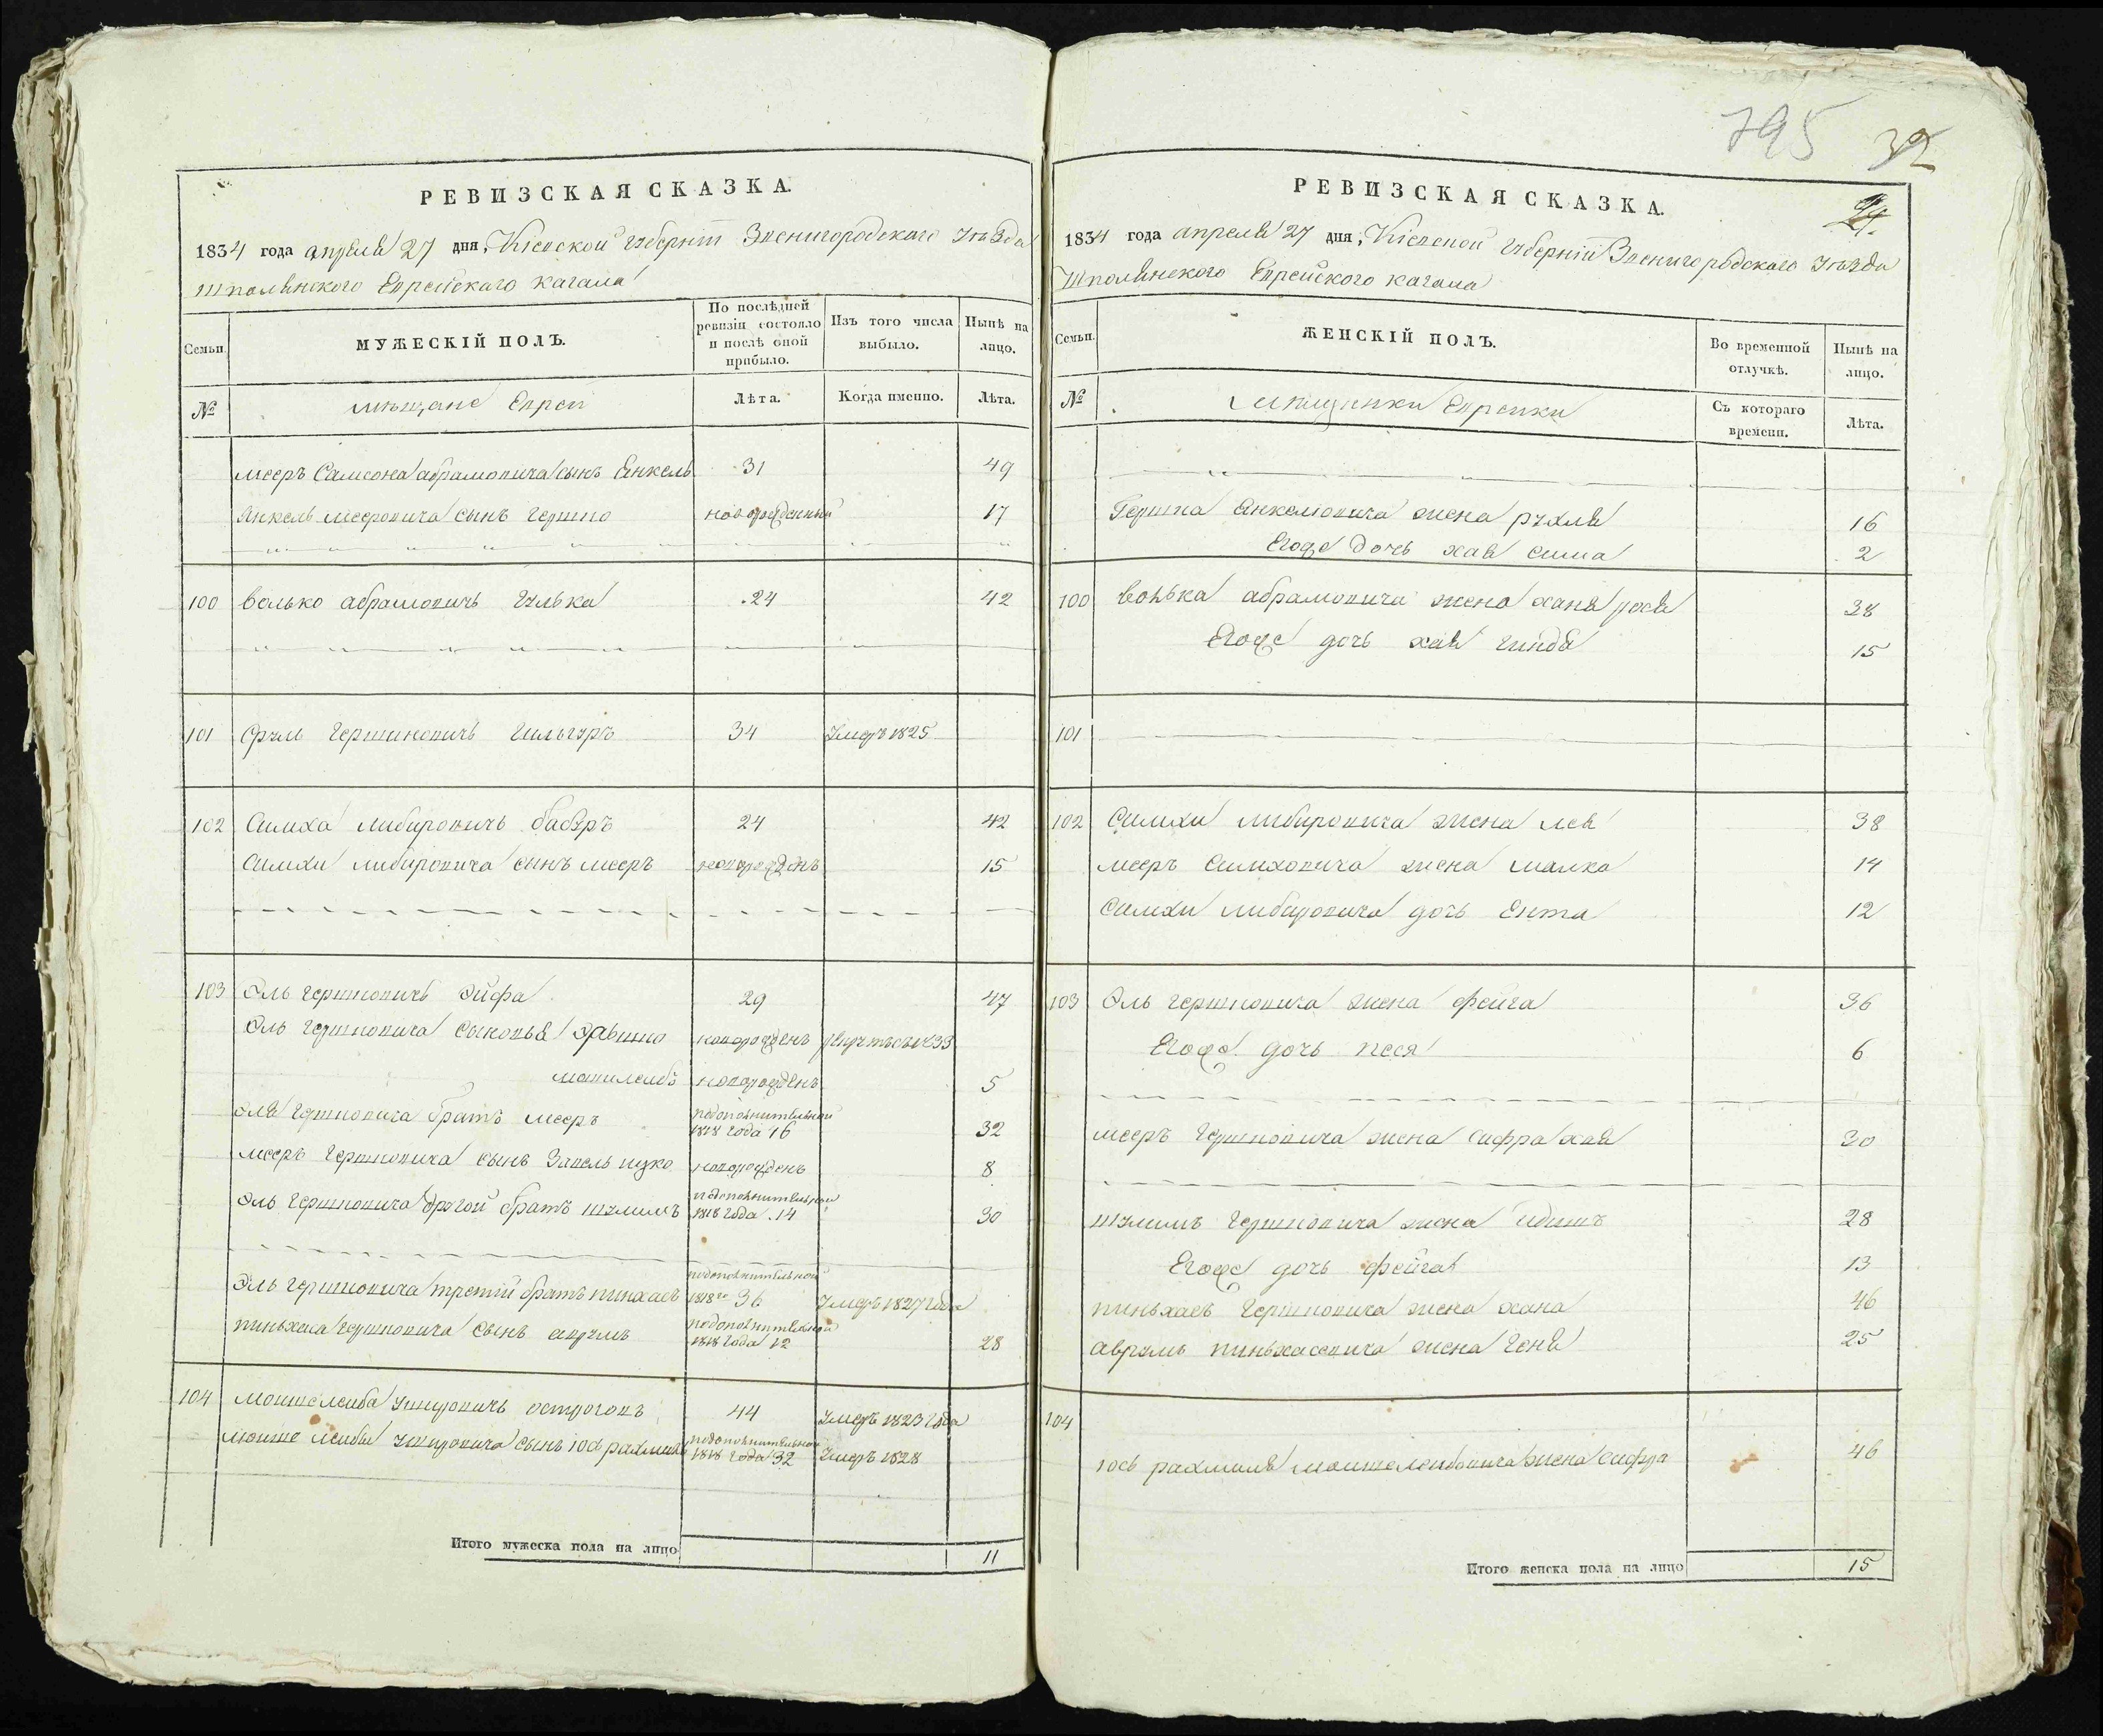 РЕВИЗСКАЯ СКАЗКА.
1834 года апреля 27 дня, Кіевской губерніи Звенигородскаго уѣзда
Шполянского Еврейскаго кагала
Семьи.
МУЖЕСКІЙ ПОЛЪ.
По послѣдней ревизіи состояло и послѣ оной прибыло.
Изъ того числа выбыло.
Нынѣ на лицо.
№
мѣщане Евреи
Лѣта.
Когда именно.
Лѣта.
мееръ Самсона абрамовича сынъ Янкель 31 49
Янкель мееровича сынъ гершко новорожденный 17
100 волько абрамовичъ гулька 24 42
101 Сруль гершковичъ 34 умеръ 1825
102 Симха либировичъ 24 42
Симхи либировича сынъ мееръ новорожденъ 15
103 Эль гершковичъ Эйфа 29 47
Эль гершковича сыновья новорожденъ 1833
новорожденъ 5
Эля гершковича братъ мееръ подополнительной 1818 года 16 32
мееръ гершковича сынъ новорожденъ 8
Эль гершковича другой братъ шулимъ подополнительной 1818 года 14 30
Эль гершковича третий братъ пинхасъ подополнительной 1818 го 36 умеръ 1827 года
пиньхаса гершковича сынъ аврумъ подополнительной 1818 года 12 28
104 мошко лейба островъ 44 умеръ 1823 года
мошко лейбы сынъ іось рахмиль подополнительной 1818 года 32 умеръ 1828
Итого мужеска пола на лицо 11
795 32
РЕВИЗСКАЯ СКАЗКА.
24.
1834 года апреля 27 дня, Кіевской губерніи Звенигородского уѣзда
Шполянского Еврейского кагала
Семьи.
ЖЕНСКІЙ ПОЛЪ.
Во временной отлучкѣ.
Нынѣ на лицо.
№
мѣщанки Еврейки
Съ котораго времени.
Лѣта.
Гершка Янкелювича жена рухля 16
Егоже дочь хая сима 2
100 волька абрамовича жена ханя рося 38
Егоже дочь хая гинда 15
101
102 Симхи либировича жена лея 38
мееръ Симховича жена малка 14
Симхи либировича дочь Ента 12
103 Эль гершковича жена фейга 36
Егоже дочь песя 6
мееръ гершковича жена Сифра хая 30
шулимъ гершковича жена 28
Егоже дочь фейга 13
пиньхасъ гершковича жена хана 46
аврумъ пиньхасовича жена геня 25
104
іось рахмиля мошко лейбовича жена Сифра 46
Итого женска пола на лицо 15